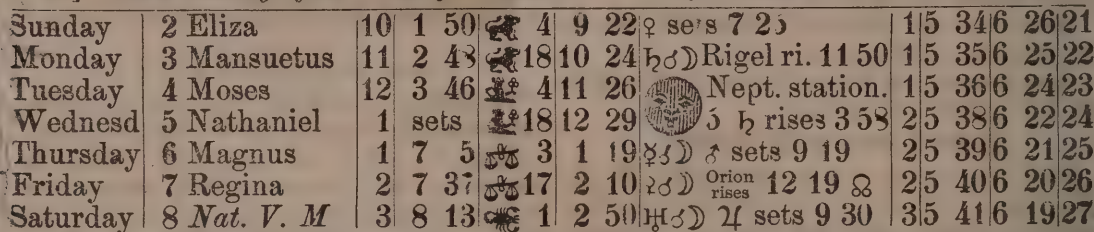 Sunday 2 Eliza 10 1 50 ♌ 4 9 22 ♀ sets 7 25 1 5 34 6 26 21
Monday 3 Mansuetus 11 2 48 ♌ 18 10 24 ♄☌☽ Rigel ri. 11 50 1 5 35 6 25 22
Tuesday 4 Moses 12 3 46 ♍ 4 11 26 Nept. station. 1 5 36 6 24 23
Wednesd 5 Nathaniel 1 sets ♍ 18 12 29 5 ♄ rises 3 58 2 5 38 6 22 24
Thursday 6 Magnus 1 7 5 ♎ 3 1 19 ☿☌☽ ♂ sets 9 19 2 5 39 6 21 25
Friday 7 Regina 2 7 37 ♎ 17 2 10 ☌☽ Orion rises 12 19 ☊ 2 5 40 6 20 26
Saturday 8 Nat. V. M 3 8 13 ♏ 1 2 50 ♅☌☽ ♃ sets 9 30 3 5 41 6 19 27